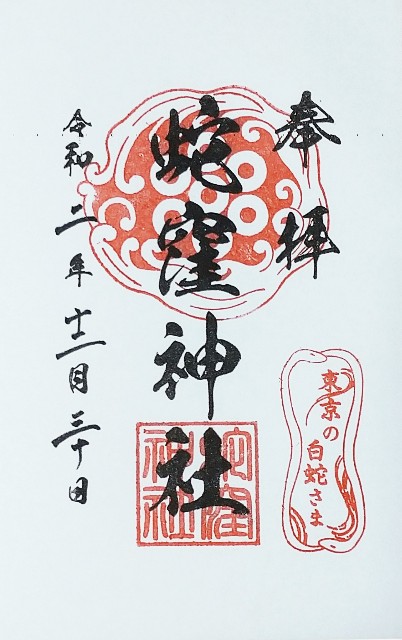 奉拝
蛇窪神社
蛇窪神社
東京の
白蛇さま
令和二年十二月三十日